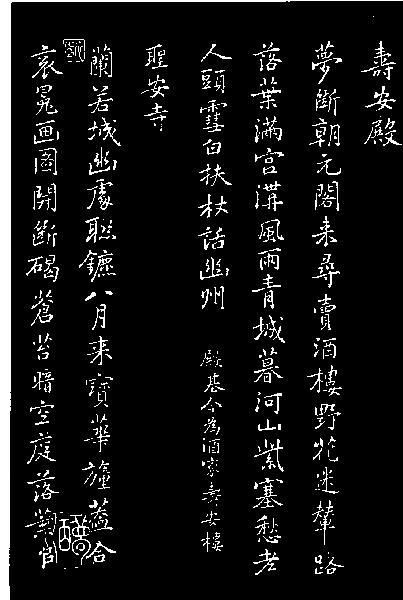 壽安殿
夢斷朝元閣来尋賣酒樓野花迷輦路
落葉滿宫溝風雨青城暮河山紫塞愁老
人頭雪白扶杖話幽州 殿基今為酒家壽安樓
聖安寺
蘭若城幽處聯鑣八月来寶華旛蓋合
衮冕画圖開斷碣蒼苔暗空庭落葉